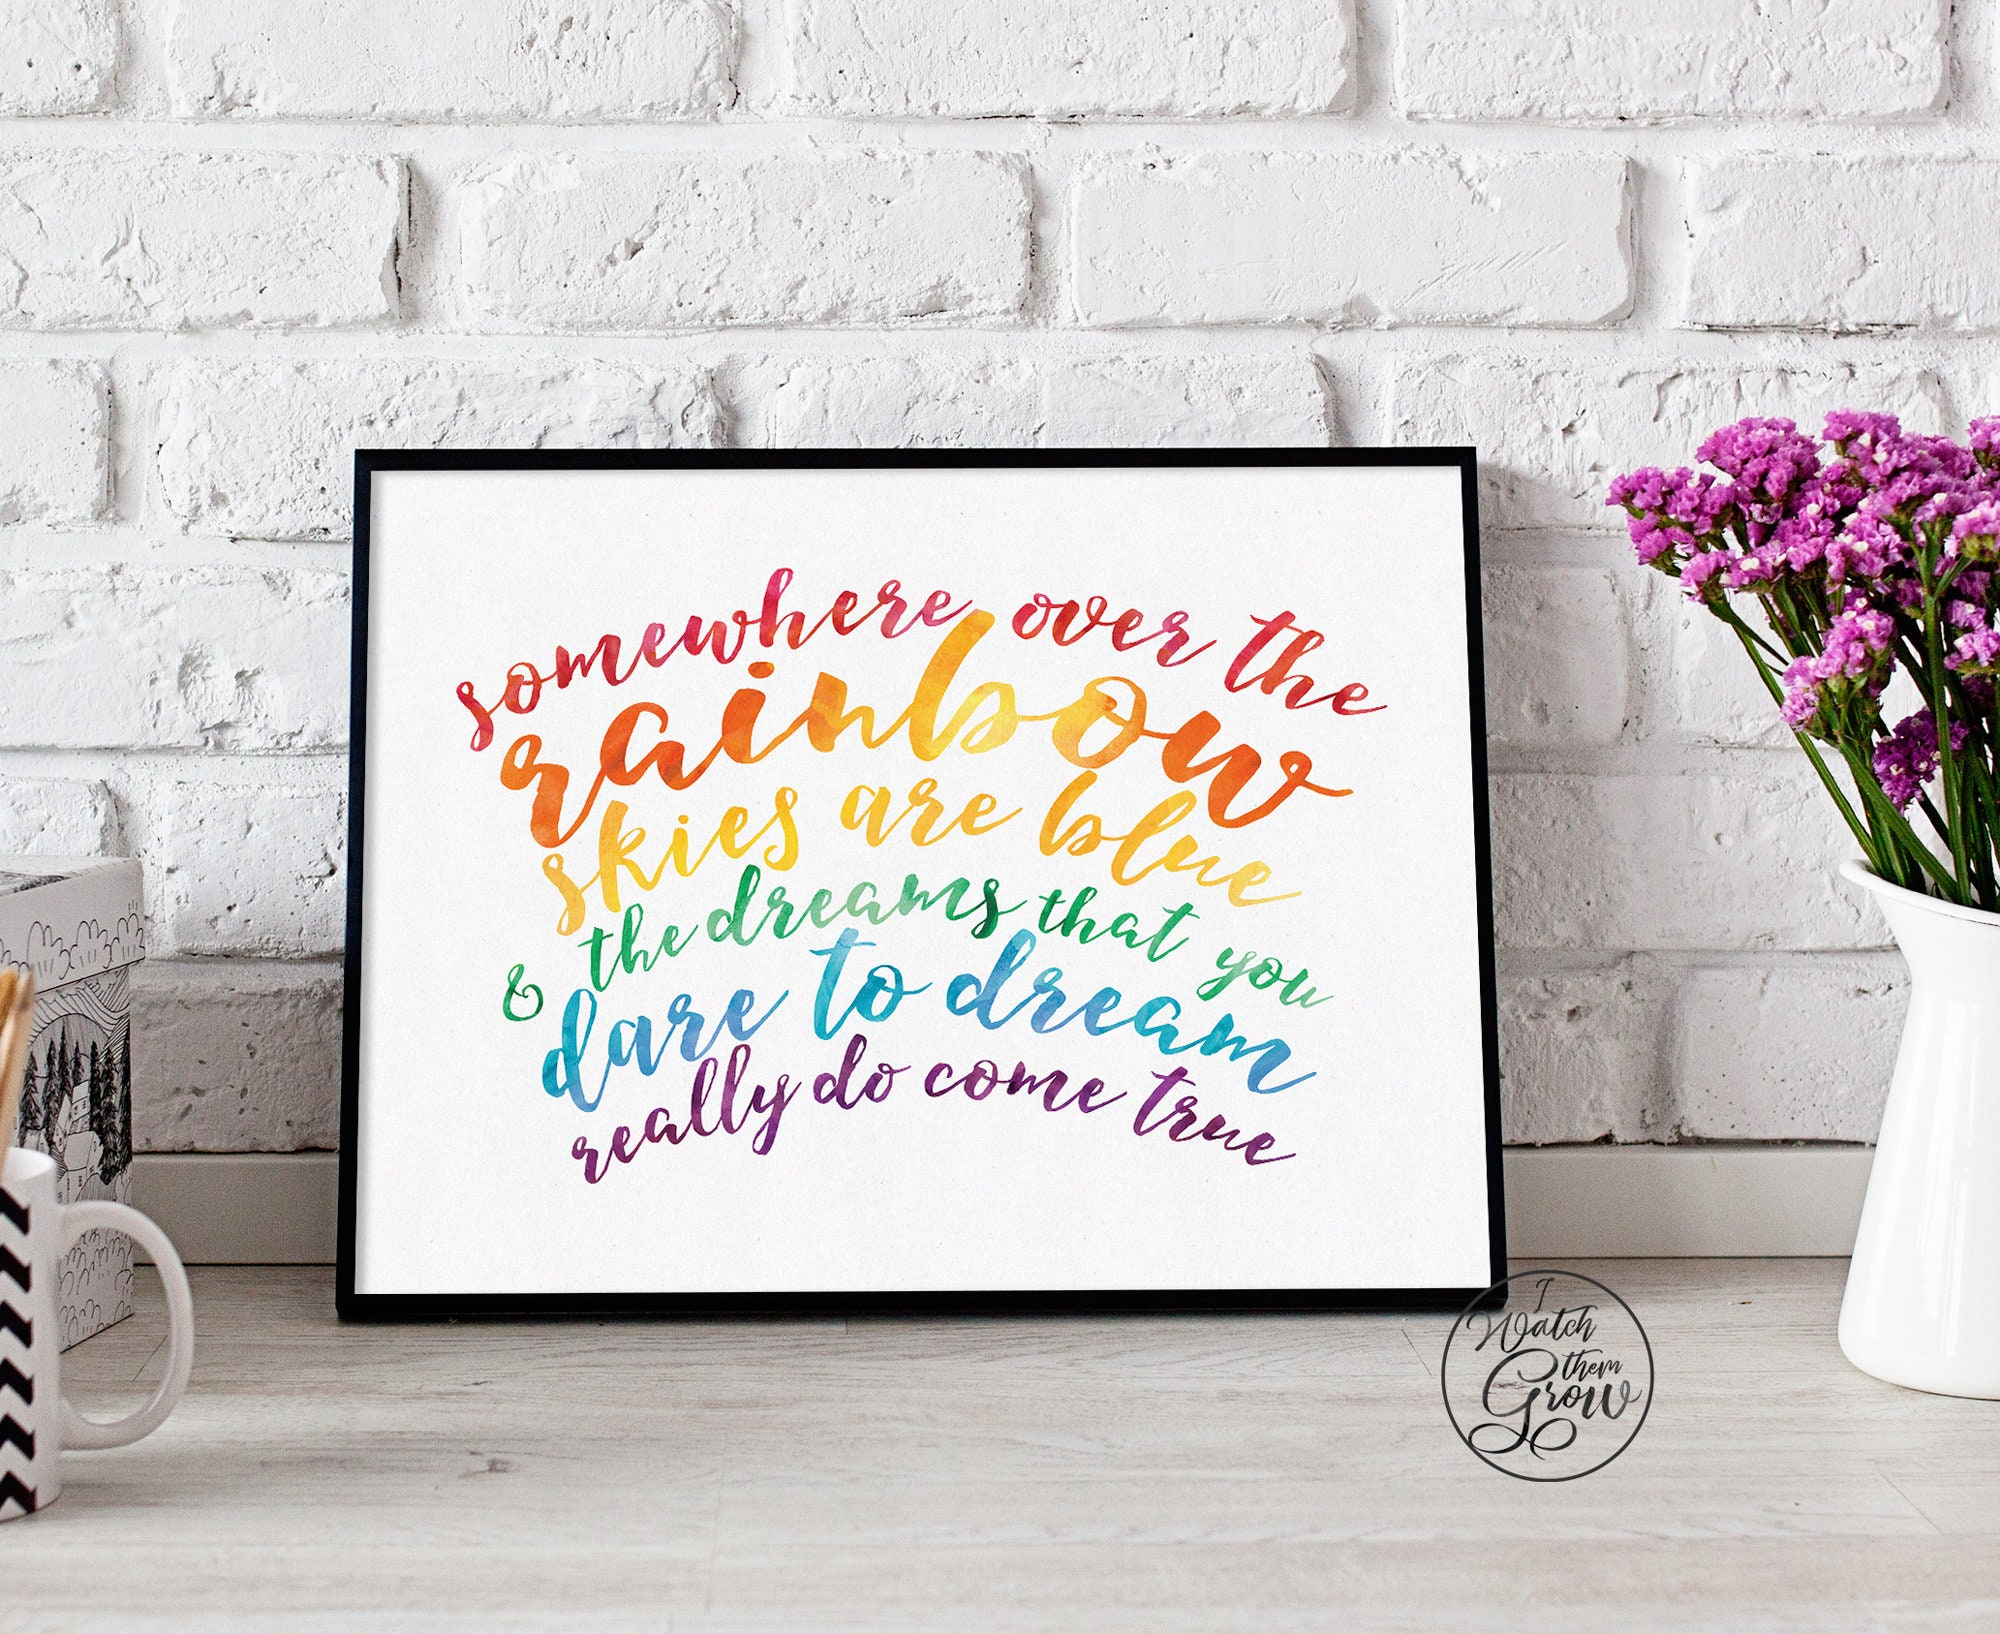 somewhere over the
rainbow
skies are blue
& the dreams that you
dare to dream
really do come true
I
Watch
them
Grow